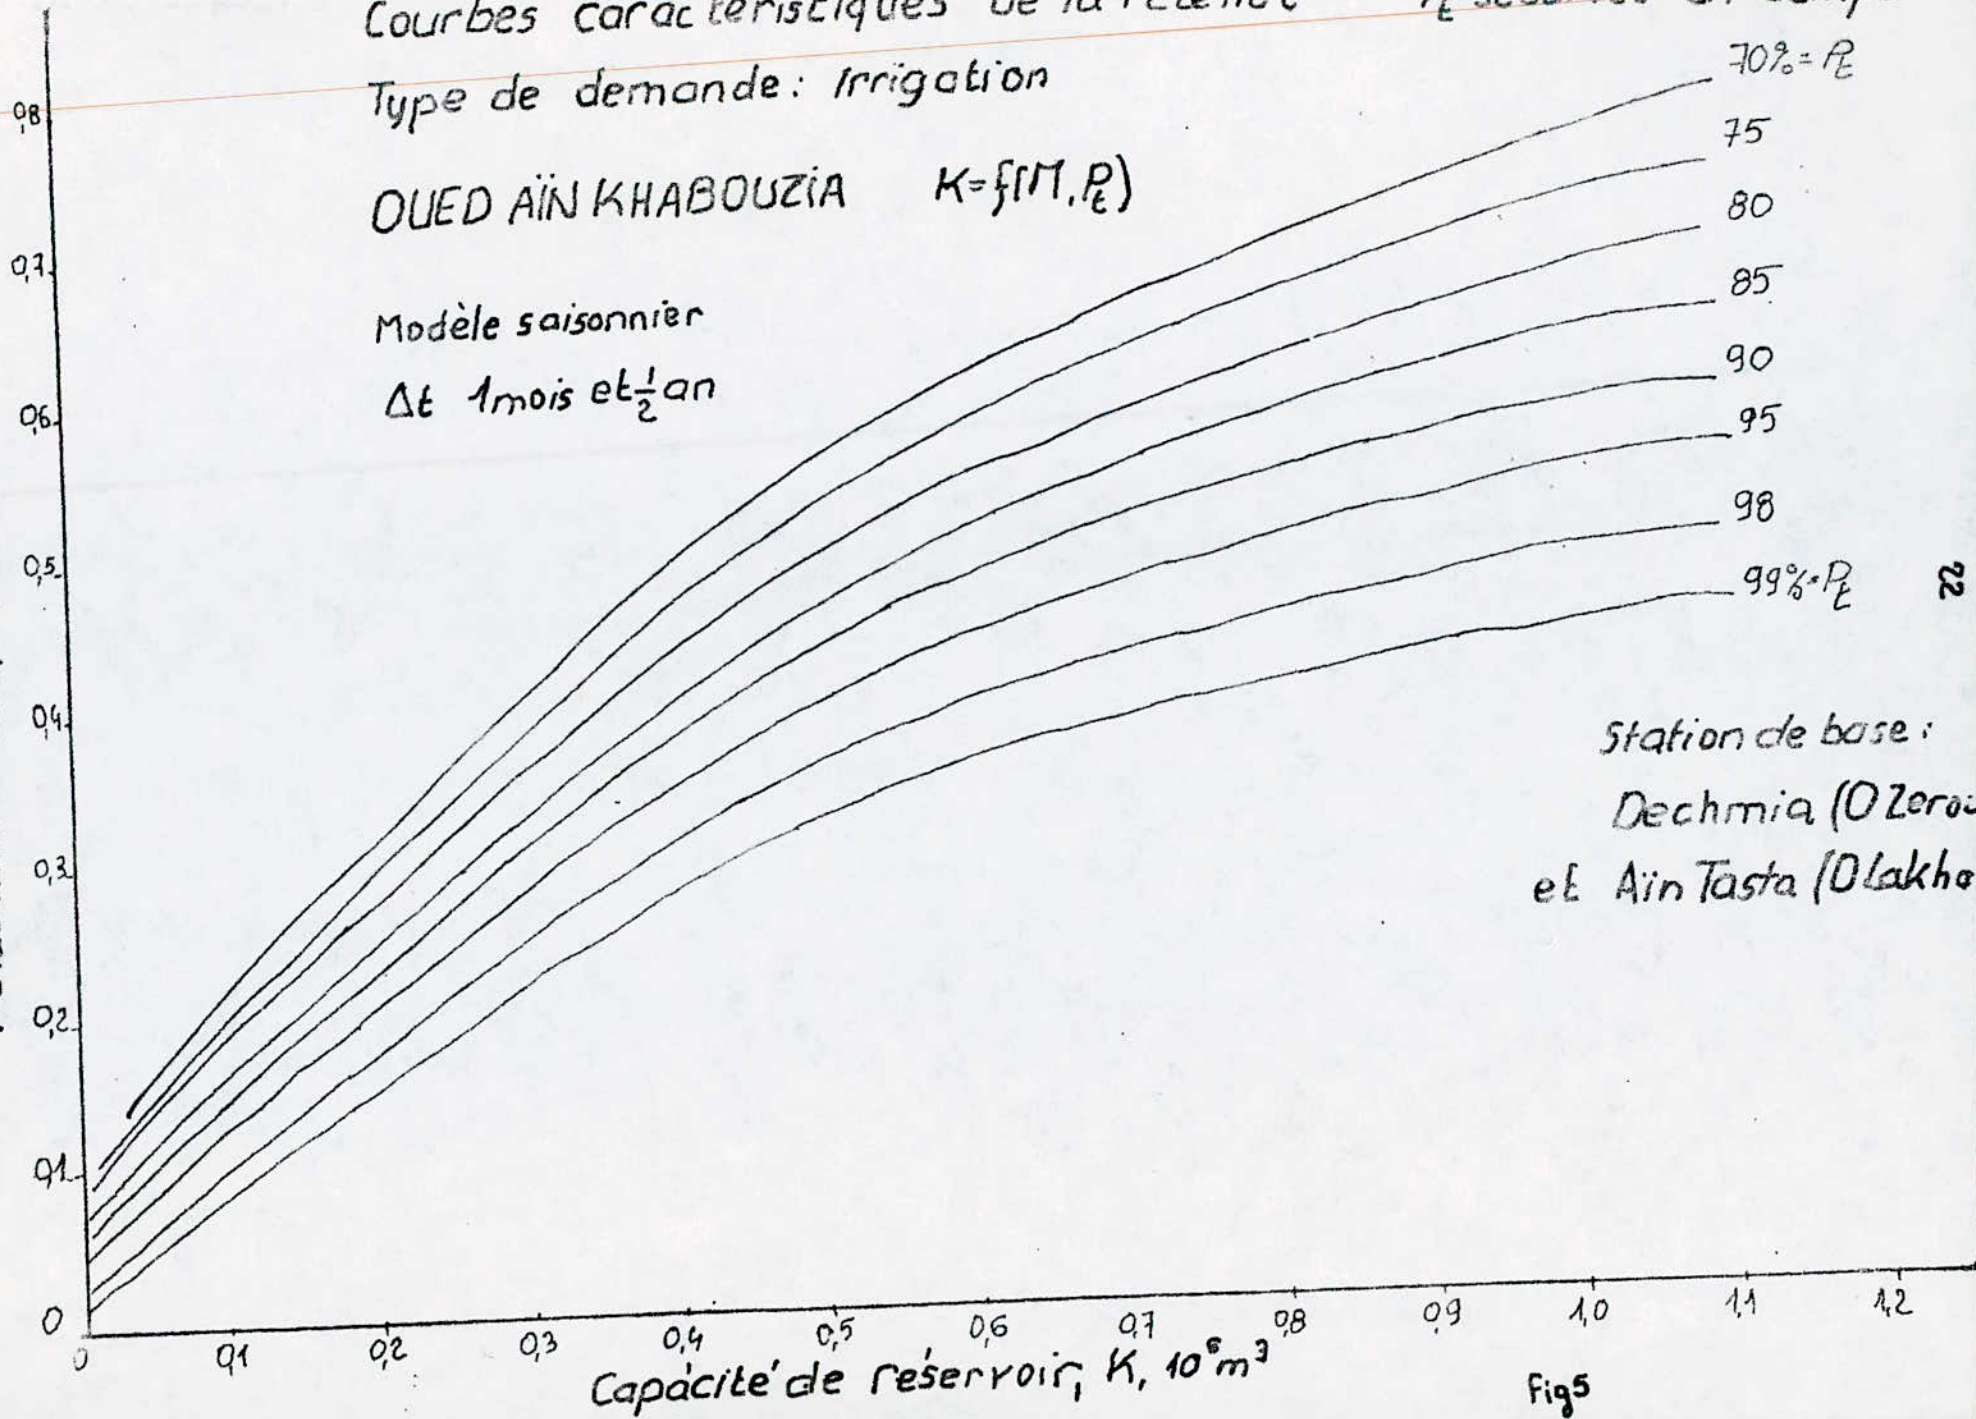 Courbes caractéristiques de la
Type de demande: Irrigation
OUED AÏN KHABOUZIA K=f(M,Pt)
Modèle saisonnier
Δt 1mois et 1/2 an
70%=Pt
75
80
85
90
95
98
99%=Pt
22
Station de base:
Dechmia (O Zerou
et Aïn Tasta (O Lakha
0,8
0,7
0,6
0,5
0,4
0,3
0,2
0,1
0
0 0,1 0,2 0,3 0,4 0,5 0,6 0,7 0,8 0,9 1,0 1,1 1,2
Capacité de réservoir, K, 10⁶m³
Fig5